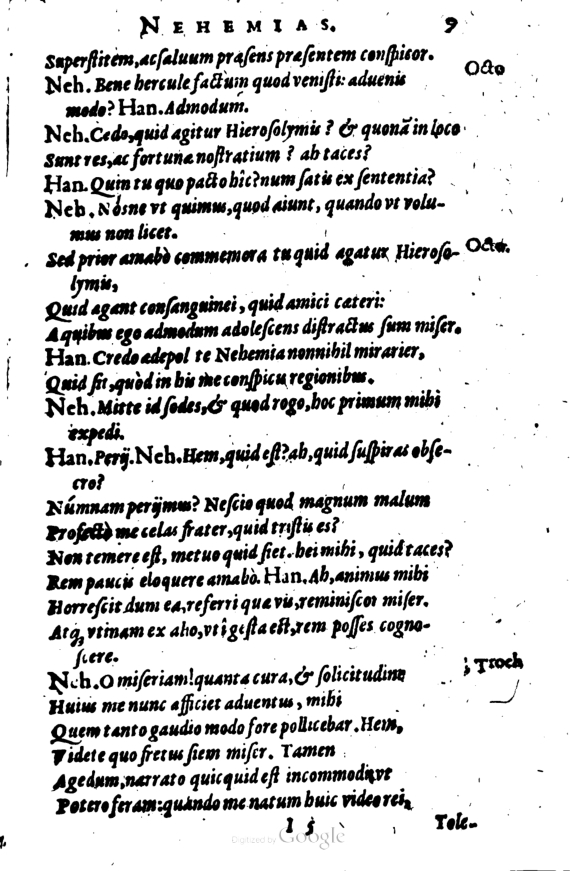 NEHEMIAS. 9
Superſtitem, ac ſaluum præſens præſentem conſpicor.
Octo
Neh. Bene hercule factum quod veniſti: aduenis
modo? Han. Admodum.
Neh. Cedo, quid agitur Hieroſolymis? & quonā in loco
Sunt res, ac fortunæ noſtratium? ah taces?
Han. Quin tu quo pacto hîc? num ſatis ex ſententia?
Neh. Nósne vt quimus, quod aiunt, quando vt volu-
mus non licet.
Sed prior amabò commemora tu quid agatur Hieroſo-
Octo.
lymis,
Quid agant conſanguinei, quid amici cæteri:
A quibus ego admodum adoleſcens diſtractus ſum miſer.
Han. Credo ædepol te Nehemia nonnihil mirarier,
Quid ſit, quòd in his me conſpicu regionibus.
Neh. Mitte id ſodes, & quod rogo, hoc primum mihi
expedi.
Han. Perij. Neh. Hem, quid eſt? ah, quid ſuſpiras obſe-
cro?
Númnam perijmus? Neſcio quod magnum malum
Profectò me celas frater, quid triſtis es?
Non temere eſt, metuo quid ſiet. hei mihi, quid taces?
Rem paucis eloquere amabò. Han. Ah, animus mihi
Horreſcit dum ea, referri quæ vis, reminiſcor miſer.
Atq, vtinam ex alio, vti geſta eſt, rem poſſes cogno-
ſcere.
Neh. O miſeriam! quanta cura, & ſolicitudine
; Troch
Huius me nunc afficiet aduentus, mihi
Quem tanto gaudio modo fore pollicebar. Hem,
Videte quo fretus ſiem miſer. Tamen
Agedum, narrato quicquid eſt incommodi, vt
Potero feram: quando me natum huic video rei,
I 5
Tole-
Digitized by Google